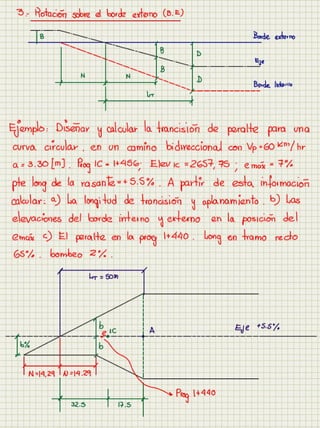 3.- Rotación sobre el borde externo (B.E)
B
Borde externo
B
D
Eje
B
N
N
D
Borde Interno
LT
Ejemplo: Diseñar y calcular la trancisión de peralte para una
curva circular, en un camino bidireccional con Vp=60 km/hr
a = 3.30 [m]. Prog IC = 1+456; Elev IC = 2657,75; e máx = 7%
pte long de la rasante = +5.5%. A partir de esta información
calcular: a) La longitud de trancisión y aplanamiento. b) Las
elevaciones del borde interno y externo en la posición del
emáx c) El peralte en la prog 1+440. Long en tramo recto
65%. bombeo 2%.
LT = 50m
b
e
IC
A
Eje +5.5%
b%
b
N=14,29
N=14.29
Prog 1+440
32.5
17.5